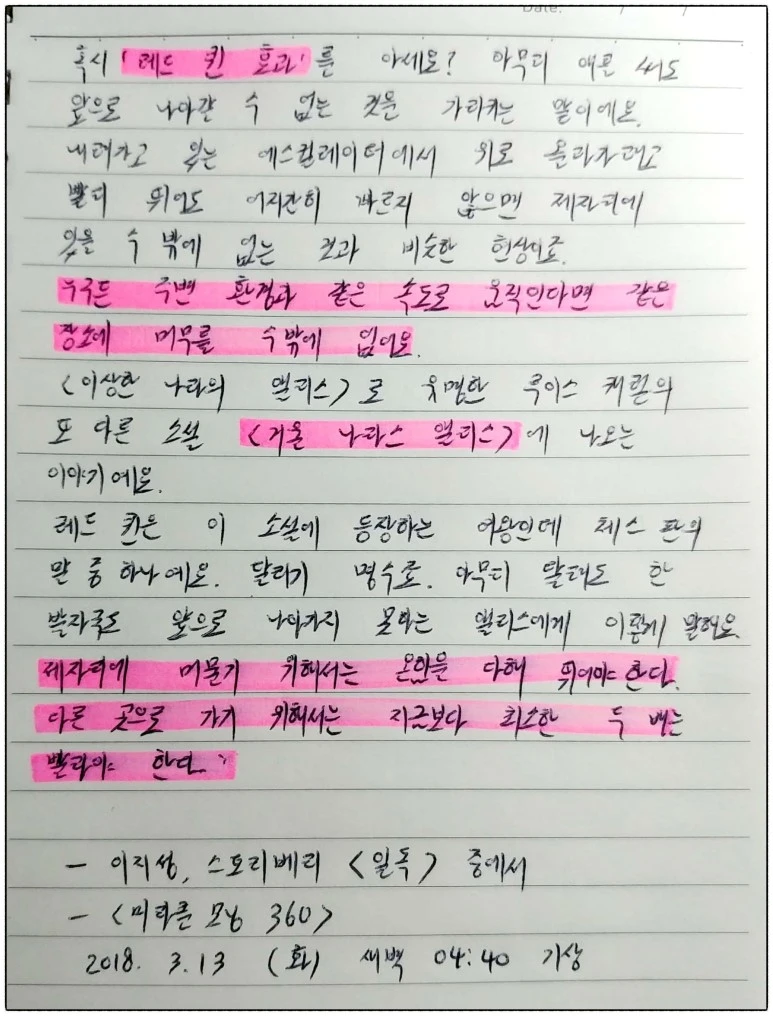 Date: / /
혹시 '레드 퀸 효과'를 아세요? 아무리 애를 써도
앞으로 나아갈 수 없는 것을 가리키는 말이에요.
내려가고 있는 에스컬레이터에서 위로 올라가려고
빨리 뛰어도 어지간히 빠르지 않으면 제자리에
있을 수 밖에 없는 것과 비슷한 현상이죠.
누구든 주변 환경과 같은 속도로 움직인다면 같은
장소에 머무를 수밖에 없어요.
<이상한 나라의 앨리스>로 유명한 루이스 캐럴의
또 다른 소설 <거울 나라스 앨리스>에 나오는
이야기예요.
레드 퀸은 이 소설에 등장하는 여왕인데 체스 판의
말 중 하나예요. 달리기 명수로. 아무리 달려도 한
발자국도 앞으로 나아가지 못하는 앨리스에게 이렇게 말해요.
제자리에 머물기 위해서는 온힘을 다해 뛰어야 한다.
다른 곳으로 가기 위해서는 지금보다 최소한 두 배는
빨라야 한다."
- 이지성, 스토리베리 <일독> 중에서
- <미라클 모닝 360>
2018. 3.13 (화) 새벽 04:40 기상